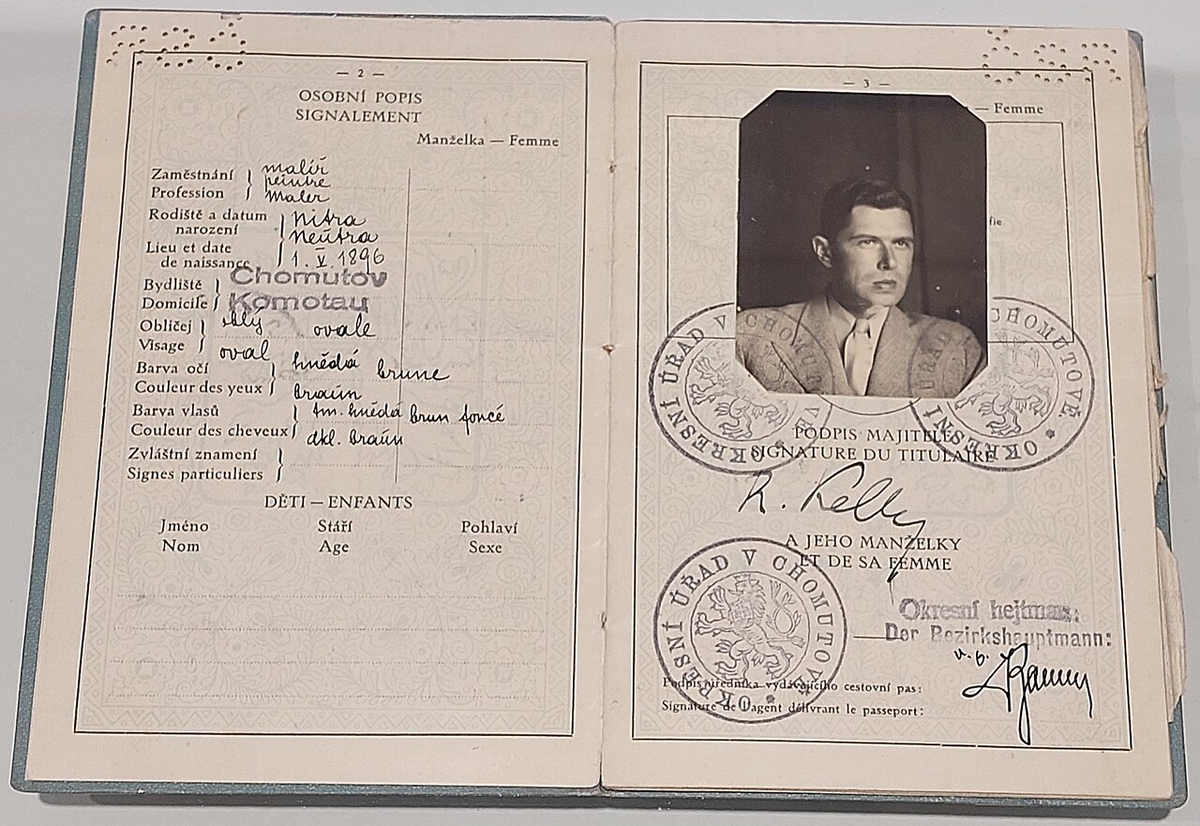 — 2 —
OSOBNÍ POPIS
SIGNALEMENT
Manželka — Femme
Zaměstnání
Profession
malíř
peintre
Maler
Rodiště a datum
narození
Lieu et date
de naissance
Nitra
Neutra
1. V. 1896
Bydliště
Domicile
Chomutov
Komotau
Obličej
Visage
ovale
oval
Barva očí
Couleur des yeux
hnědá brune
braun
Barva vlasů
Couleur des cheveux
tm. hnědá brun foncé
dkl. braun
Zvláštní znamení
Signes particuliers
DĚTI — ENFANTS
Jméno Stáří Pohlaví
Nom Age Sexe
— 3 —
— Femme
fie
OKRESNÍ ÚŘAD V CHOMUTOVĚ
OKRESNÍ ÚŘAD V CHOMUTOVĚ
PODPIS MAJITELE
SIGNATURE DU TITULAIRE
A JEHO MANŽELKY
ET DE SA FEMME
OKRESNÍ ÚŘAD V CHOMUTOVĚ
Okresní hejtman:
Der Bezirkshauptmann:
Podpis úředníka vydávajícího cestovní pas:
Signature de l'agent délivrant le passeport: